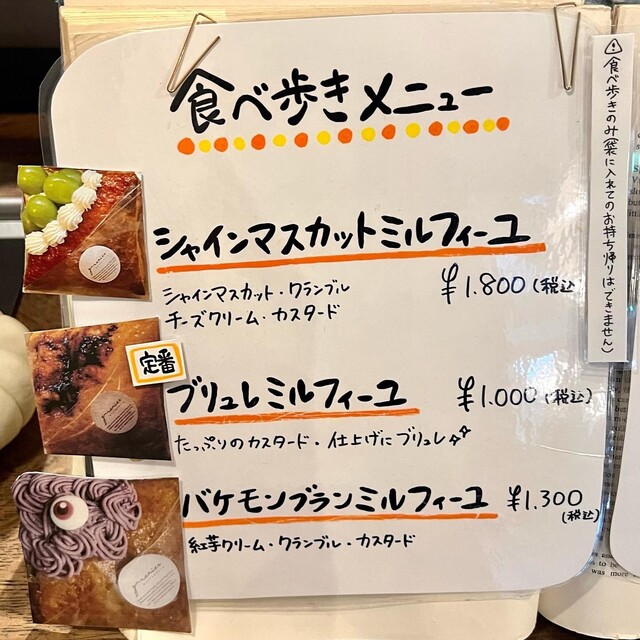 食べ歩きメニュー
シャインマスカットミルフィーユ
シャインマスカット・クランブル
チーズクリーム・カスタード
¥1.800(税込
定番
ブリュレミルフィーユ
¥1.000(税込)
たっぷりのカスタード・仕上げにブリュレ
バケモンブランミルフィーユ
¥1.300
(税込)
紅芋クリーム・クランブル・カスタード
⚠食べ歩きのみ(袋に入れてのお持ち帰りはできません)
was more